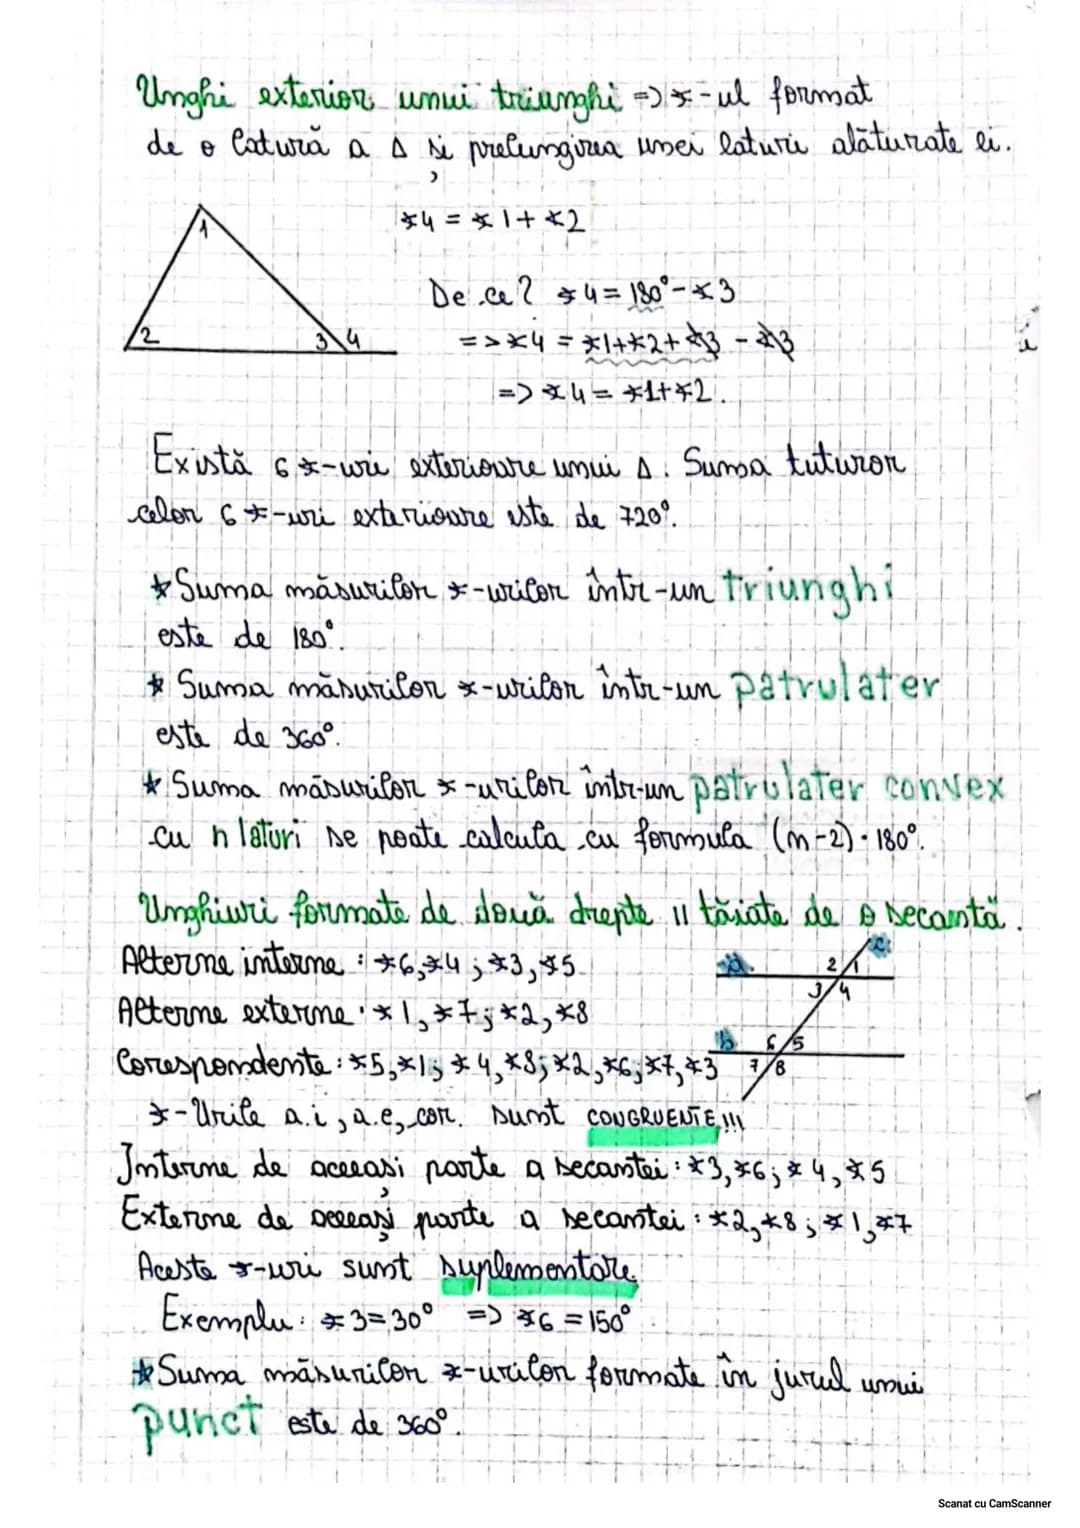 Unghi exterior unui triunghi => ∢-ul format
de o latură a Δ și prelungirea unei laturi alăturate ei.
∢4 = ∢1 + ∢2
1
De ce? ∢4 = 180° - ∢3
2 3 4
=> ∢4 = ∢1+∢2+∢3 - ∢3
=> ∢4 = ∢1+∢2.
Există 6 ∢-uri exterioare unui Δ. Suma tuturor
celor 6 ∢-uri exterioare este de 720°.
* Suma măsurilor ∢-urilor într-un triunghi
este de 180°.
* Suma măsurilor ∢-urilor într-un patrulater
este de 360°.
* Suma măsurilor ∢-urilor într-un patrulater convex
cu n laturi se poate calcula cu formula (n-2)·180°.
Unghiuri formate de două drepte || tăiate de o secantă.
Alterne interne: ∢6,∢4; ∢3,∢5
Alterne externe: ∢1,∢7; ∢2,∢8
Corespondente: ∢5,∢1; ∢4,∢8; ∢2,∢6; ∢7,∢3
c
2 1
3 4
b 6 5
7 8
∢-urile a.i, a.e, cor. sunt CONGRUENTE!!!
Interne de aceeași parte a secantei: ∢3,∢6; ∢4,∢5
Externe de aceeași parte a secantei: ∢2,∢8; ∢1,∢7
Aceste ∢-uri sunt suplementare.
Exemplu: ∢3=30° => ∢6=150°
* Suma măsurilor ∢-urilor formate în jurul unui
punct este de 360°.
Scanat cu CamScanner